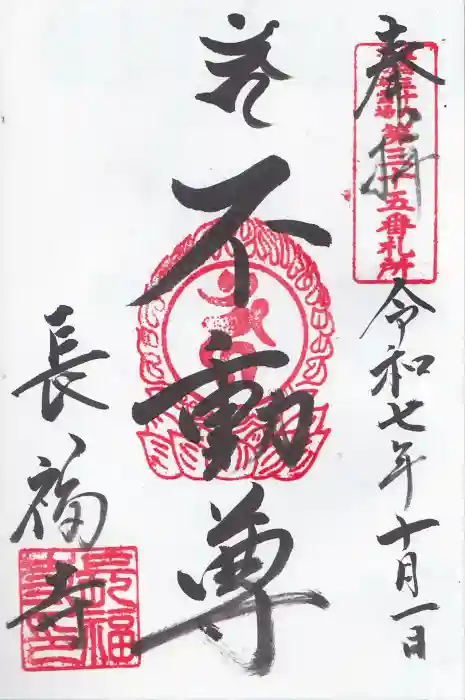 奉拝
令和七年十月一日
第三十五番札所
不動尊
長福寺
長福